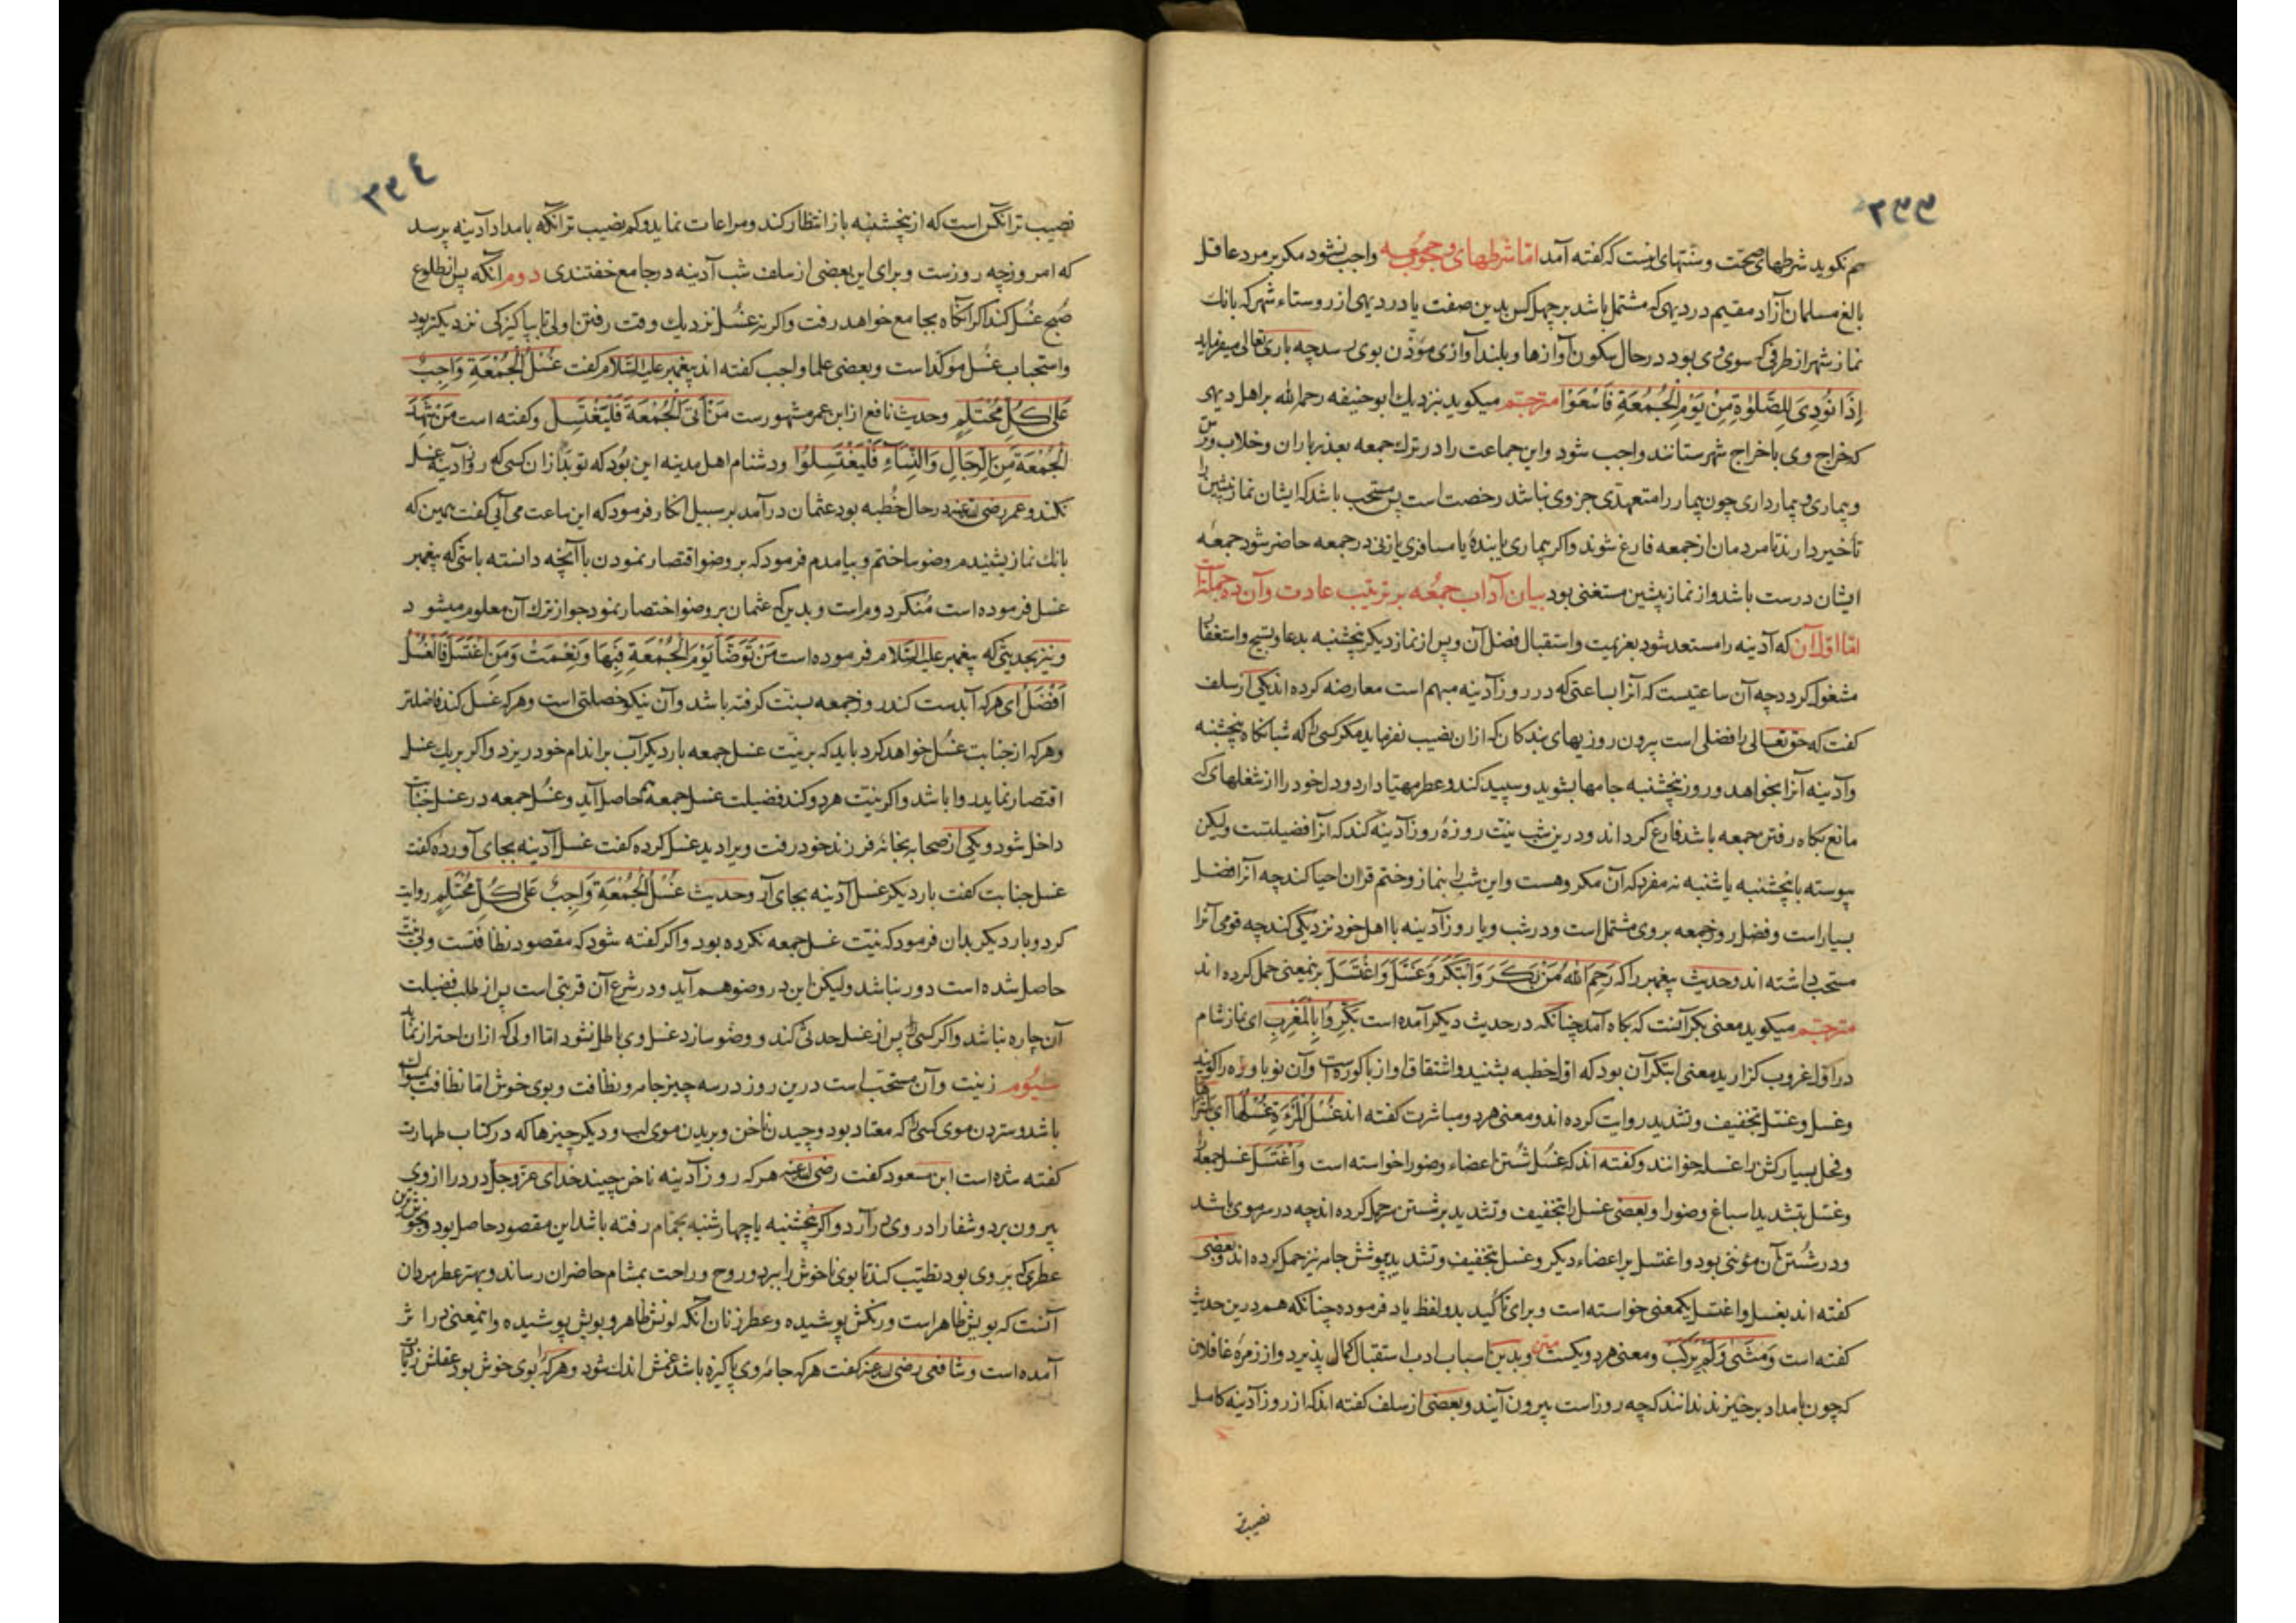 ۲۳۳
هم نکوید شرطهای صحت و سنتهای اینست که گفته آمد اما شرطهای وجوب جمعه واجب نشود مکر بر مرد عاقل
بالغ مسلمان آزاد مقیم در دیهی که مشتمل باشد بر چهل کس بدین صفت یا در دیهی از روستاء شهر که بانك
نماز شهر از طرفی که سوی وی بود در حال سکون آوازها و بلند آوازی مؤذن بوی رسد چه باری تعالی میفرماید
اِذَا نُودِیَ لِلصَّلٰوةِ مِنْ یَوْمِ الْجُمُعَةِ فَاسْعَوْا مترجم میکوید بنزدیك ابو حنیفه رحمه الله بر اهل دیهی
که خراج وی با خراج شهر ستانند واجب شود و این جماعت را در ترك جمعه بعذر باران و خلاب و ترس
و بیماری و بیمارداری چون بیمار را متعهدی جز وی نباشد رخصت است پس مستحب باشد که ایشان نماز پیشین را
تأخیر دارند تا مردمان از جمعه فارغ شوند و اکر بیماری یا بندۀ یا مسافری یا زنی در جمعه حاضر شود جمعه
ایشان درست باشد و از نماز پیشین مستغنی بود بیان آداب جمعه بر ترتیب عادت و آن ده جمله است
اما اول آن که آدینه را مستعد شود بعزیمت و استقبال فضل آن و پس از نماز دیکر پنجشنبه بدعا و تسبیح و استغفار
مشغول کردد چه آن ساعتیست که آنرا بساعتی که در روز آدینه مبهم است معارضه کرده اند یکی از سلف
کفت که حق تعالی را فضلی است بیرون روزیهای بندکان که ازان نصیب نفرماید مکر کسی را که شبانکاه پنجشنبه
و آدینه آنرا بخواهد و روز پنجشنبه جامها بشوید و سپید کند و عطر مهیا دارد و دل خود را از شغلهای که
مانع بکاه رفتن جمعه باشد فارغ کرداند و درین شب نیت روزۀ روز آدینه کند که آنرا فضیلتست ولیکن
پیوسته با پنجشنبه یا شنبه نه مفرد که آن مکروهست و این شب را بنماز و ختم قران احیا کند چه آنرا فضل
بسیار است و فضل روز جمعه بر وی مشتمل است و در شب و یا روز آدینه با اهل خود نزدیکی کند چه قومی آنرا
مستحب داشته اند و حدیث پیغمبر را که رَحِمَ اللهُ مَنْ بَکَّرَ وَابْتَکَرَ وَغَسَّلَ وَاغْتَسَلَ برین معنی حمل کرده اند
مترجم میکوید معنی بکر آنست که بکاه آمد چنانکه در حدیث دیکر آمده است بَکِّرُوا بِالْمَغْرِبِ ای نماز شام
در اول غروب کزارید معنی ابتکر آن بود که اول خطبه بشنید و اشتقاق او از باکوره است و آن نوباوه را کویند
و غسل و غسّل بتخفیف و تشدید روایت کرده اند و معنی هر دو مباشرت کفته اند
و فحل بسیار کشن را غسله خوانند و کفته اند که غسل شستن اعضاء وضو را خواسته است وَاغْتَسَلَ غسل جمعه را
و غسّل بتشدید اسباغ وضو را و بعضی غسل را بتخفیف و تشدید بر شستن سر حمل کرده اند چه در سر موی باشد
و در شستن آن مؤنتی بود و اغتسل بر اعضاء دیکر و غسل بتخفیف و تشدید بپوشش جامه نیز حمل کرده اند و بعضی
کفته اند بغسل و اغتسل یکمعنی خواسته است و برای تأکید بدو لفظ یاد فرموده چنانکه هم درین حدیث
کفته است وَمَشَی وَلَمْ یَرْکَبْ و معنی هر دو یکست متن و بدین اسباب ادب استقبال کمال پذیرد و از زمرۀ غافلان
که چون بامداد برخیزند ندانند که چه روز است بیرون آیند و بعضی از سلف کفته اند که از روز آدینه کامل
نصیب تر
۲۳٤
نصیب تر آنکس است که از پنجشنبه باز انتظار کند و مراعات نماید و کم نصیب تر آنکه بامداد آدینه پرسد
که امروز چه روزست و برای این بعضی از سلف شب آدینه در جامع خفتندی دوم آنکه پس از طلوع
صبح غسل کند اکر آنکاه بجامع خواهد رفت و اکر نه غسل نزدیك وقت رفتن اولی تا بپاکیزکی نزدیکتر بود
و استحباب غسل مؤکد است و بعضی علما واجب کفته اند پیغمبر علیه السلام کفت غُسْلُ الْجُمُعَةِ وَاجِبٌ
عَلَی کُلِّ مُحْتَلِمٍ و حدیث نافع از ابن عمر مشهورست مَنْ اَتَی الْجُمُعَةَ فَلْیَغْتَسِلْ و کفته است مَنْ شَهِدَ
الْجُمُعَةَ مِنَ الرِّجَالِ وَالنِّسَاءِ فَلْیَغْتَسِلُوا و دشنام اهل مدینه این بود که تو بد تر ازان کسی که روز آدینه غسل
نکند و عمر رضی الله عنه در حال خطبه بود عثمان درآمد بر سبیل انکار فرمود که این ساعت می آیی کفت همین که
بانك نماز بشنیدم وضو ساختم و بیامدم فرمود که بر وضو اقتصار نمودن با آنچه دانسته باشی که پیغمبر
غسل فرموده است مُنکَر دومراست و بدین که عثمان بر وضو اختصار نمود جواز ترك آن معلوم میشود
و نیز بحدیثی که پیغمبر علیه السلام فرموده است مَنْ تَوَضَّأَ یَوْمَ الْجُمُعَةِ فَبِهَا وَنِعْمَتْ وَمَنِ اغْتَسَلَ فَالْغُسْلُ
اَفْضَلُ ای هر که آبدست کند روز جمعه بسنت کرفته باشد و آن نیکو خصلتی است و هر که غسل کند فاضلتر
و هر که از جنابت غسل خواهد کرد باید که بر نیت غسل جمعه بار دیکر آب بر اندام خود ریزد و اکر بر یك غسل
اقتصار نماید روا باشد و اکر نیت هر دو کند فضیلت غسل جمعه هم حاصل آید و غسل جمعه در غسل جنابت
داخل شود و یکی از صحابه بخانۀ فرزند خود رفت ویرا دید غسل کرده کفت غسل آدینه بجای آوردۀ کفت
غسل جنابت کفت بار دیکر غسل آدینه بجای آر و حدیث غُسْلُ الْجُمُعَةِ وَاجِبٌ عَلَی کُلِّ مُحْتَلِمٍ روایت
کرد و بار دیکر بدان فرمود که نیت غسل جمعه نکرده بود و اکر کفته شود که مقصود نظافتست و بی نیت
حاصل شده است دور نباشد ولیکن این در وضو هم آید و در شرع آن قربتی است پس از طلب فضیلت
آن چاره نباشد و اکر کسی را پس از غسل حدثی کند و وضو سازد غسل وی باطل نشود اما اولی که ازان احتراز نماید
سیوم زینت و آن مستحب است درین روز در سه چیز جامه و نظافت و بوی خوش اما نظافت بمسواك
باشد و ستردن موی کسی را که معتاد بود و چیدن ناخن و بریدن موی لب و دیکر چیزها که در کتاب طهارت
کفته شده است ابن مسعود کفت رضی الله عنه هر که روز آدینه ناخن چیند خدای عز و جل درد را از وی
بیرون برد و شفا را در وی درآرد و اکر پنجشنبه یا چهارشنبه بحمام رفته باشد این مقصود حاصل بود و بخوشترین
عطری که بر وی بود تطیب کند تا بوی ناخوش را ببرد و روح و راحت بمشام حاضران رساند و بهتر عطر مردان
آنست که بویش ظاهر است و رنکش پوشیده و عطر زنان آنکه لونش ظاهر و بویش پوشیده و این معنی در اثر
آمده است و شافعی رضی الله عنه کفت هر که جامۀ وی پاکیزه باشد غمش اندك شود و هر کرا بوی خوش بود عقلش زیادت